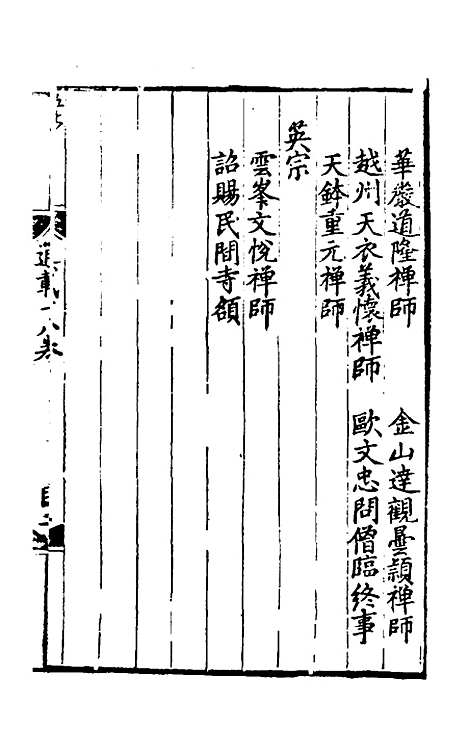 華嚴道隆禪師　金山達觀曇頴禪師
越州天衣義懷禪師　歐文忠問僧臨終事
天鉢重元禪師
英宗
雲峯文悅禪師
詔賜民間寺額
通載十八卷
目